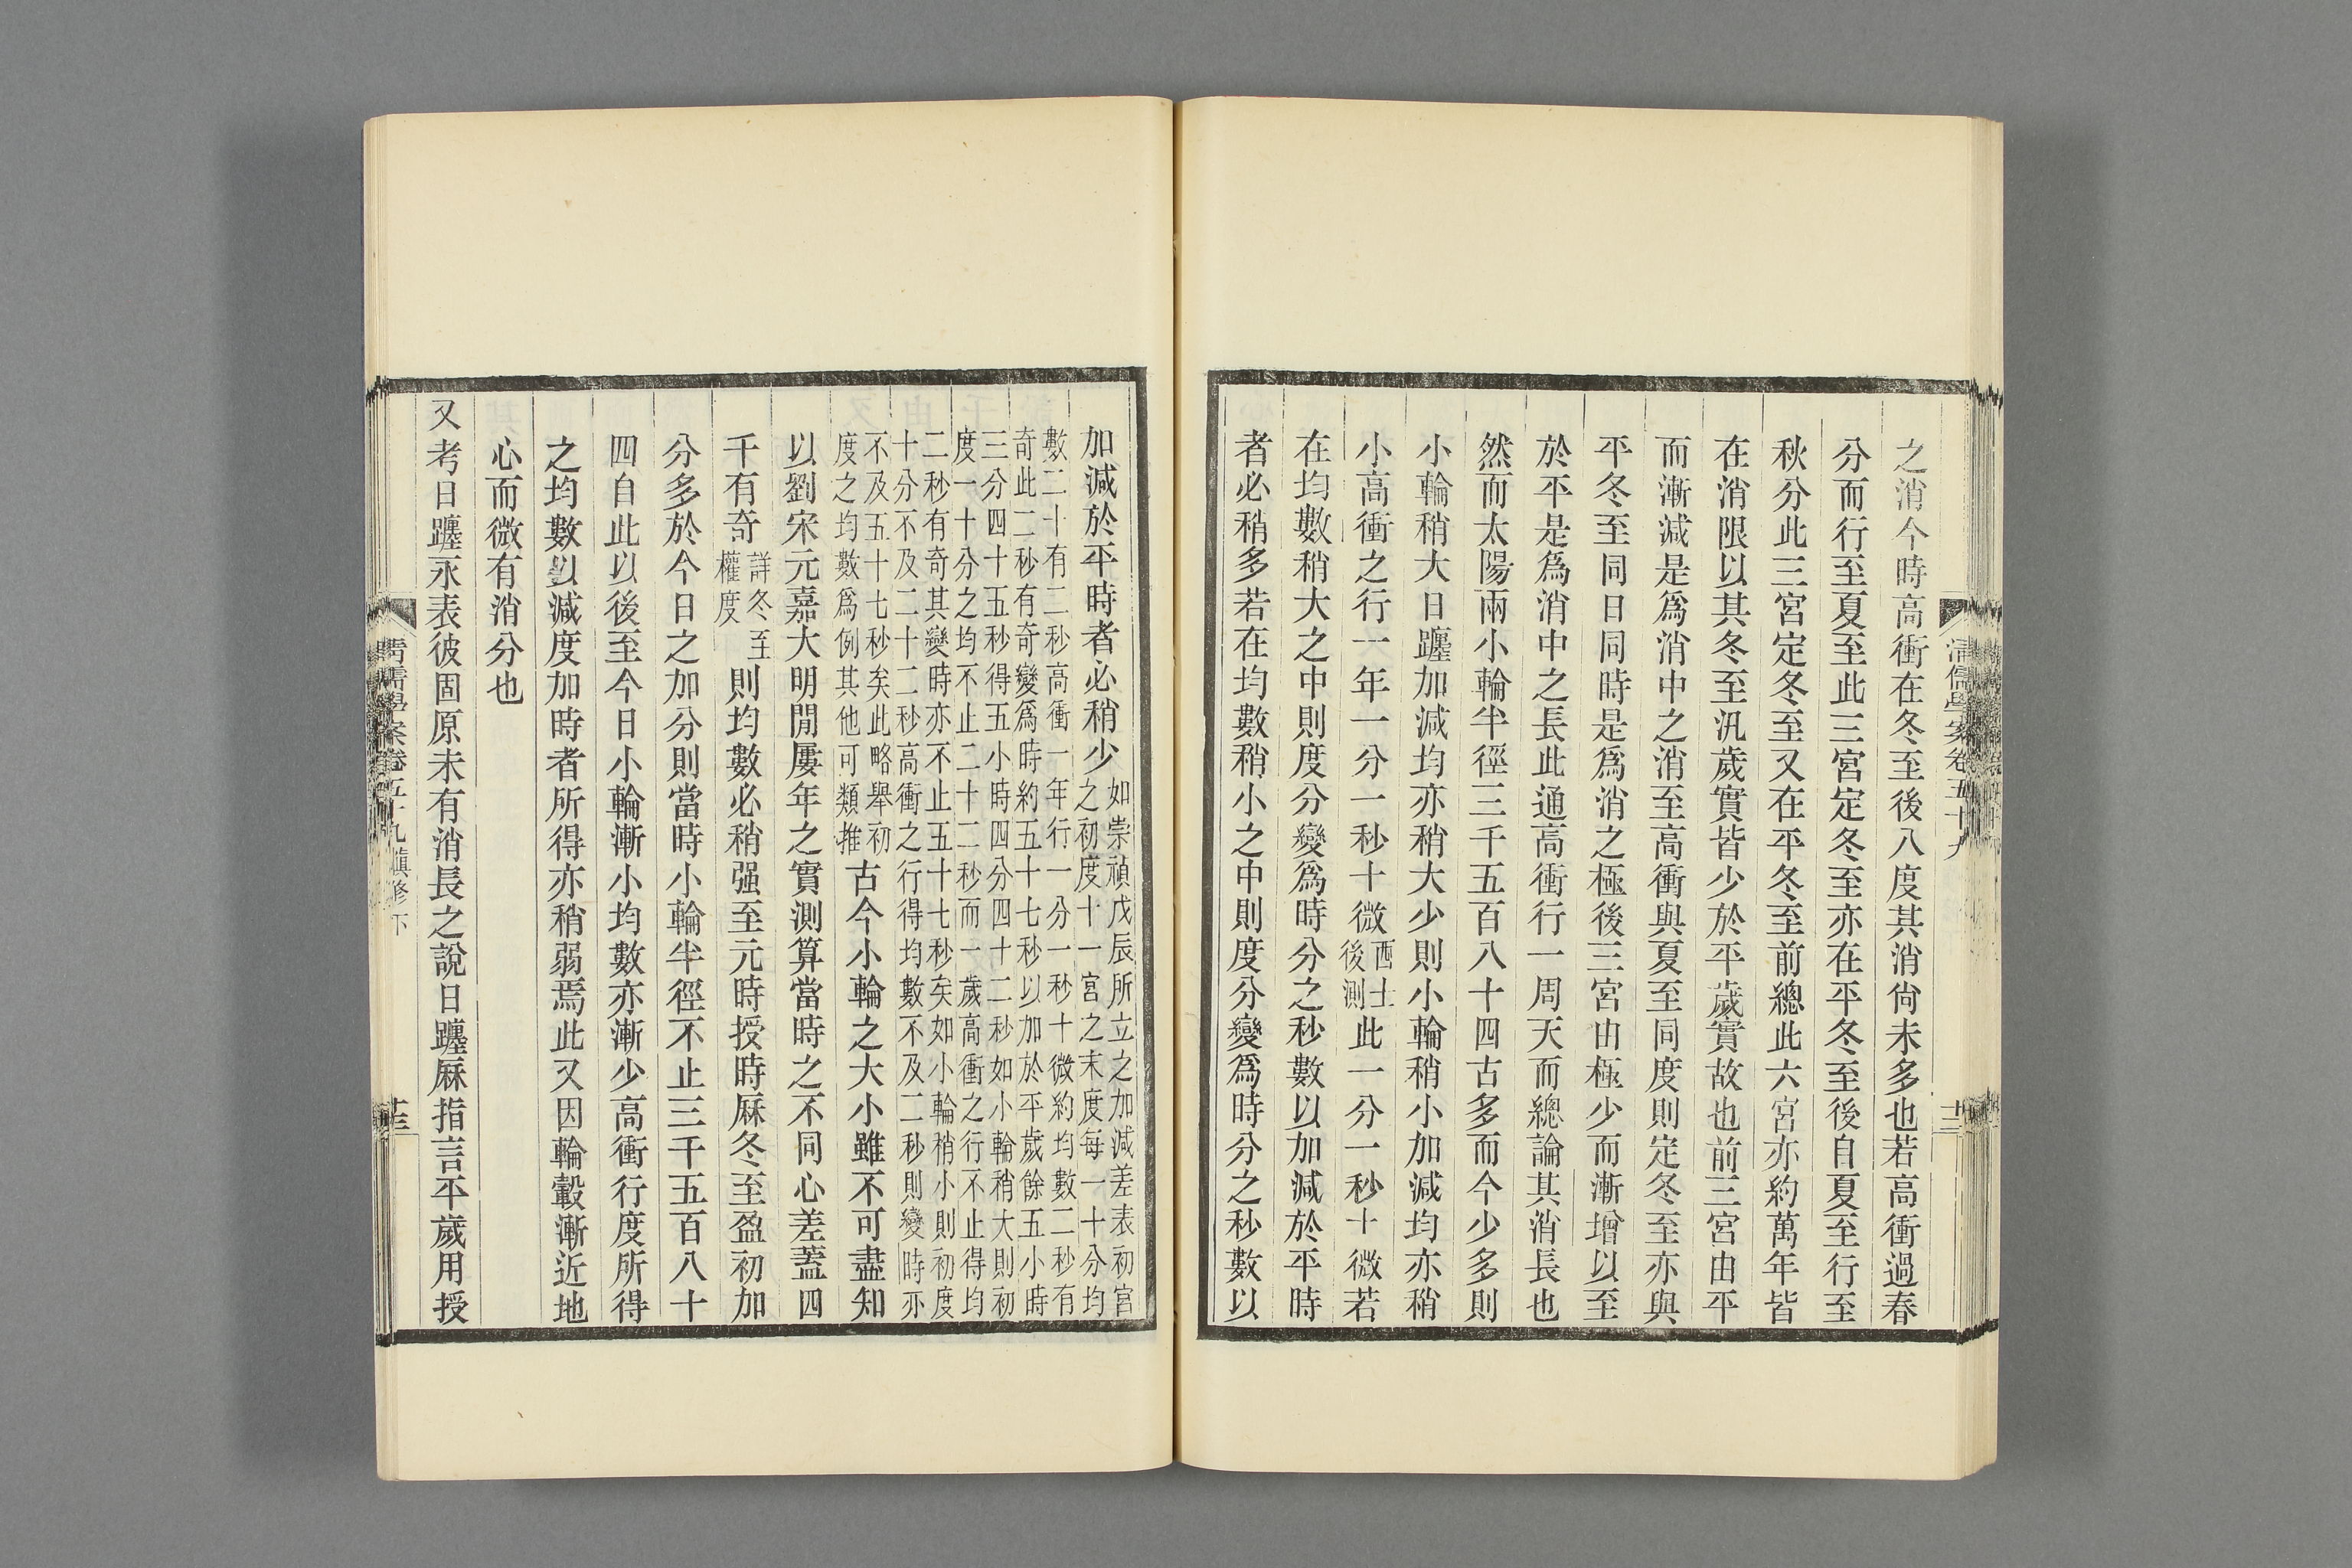 清儒學案卷五十九
之消今時高衝在冬至後八度其消尙未多也若高衝過春
分而行至夏至此三宮定冬至亦在平冬至後自夏至行至
秋分此三宮定冬至又在平冬至前總此六宮亦約萬年皆
在消限以其冬至汎歲實皆少於平歲實故也前三宮由平
而漸減是爲消中之消至高衝與夏至同度則定冬至亦與
平冬至同日同時是爲消之極後三宮由極少而漸增以至
於平是爲消中之長此通高衝行一周天而總論其消長也
然而太陽兩小輪半徑三千五百八十四古多而今少多則
小輪稍大日躔加減均亦稍大少則小輪稍小加減均亦稍
小高衝之行一年一分一秒十微西士後測此一分一秒十微若
在均數稍大之中則度分變爲時分之秒數以加減於平時
者必稍多若在均數稍小之中則度分變爲時分之秒數以
加減於平時者必稍少如崇禎戊辰所立之加減差表初宮
之初度十一宮之末度每一十分均
數二十有二秒高衝一年行一分一秒十微約均數二秒有
奇此二秒有奇變爲時約五十七秒以加於平歲餘五小時
三分四十五秒得五小時四分四十二秒如小輪稍大則初
度一十分之均不止二十二秒而一歲高衝之行不止得均
二秒有奇其變時亦不止五十七秒矣如小輪稍小則初度
十分不及二十二秒高衝之行得均數不及二秒則變時亦
不及五十七秒矣此略舉初
度之均數爲例其他可類推古今小輪之大小雖不可盡知
以劉宋元嘉大明閒屢年之實測算當時之不同心差蓋四
千有奇詳冬至權度則均數必稍强至元時授時厤冬至盈初加
分多於今日之加分則當時小輪半徑不止三千五百八十
四自此以後至今日小輪漸小均數亦漸少高衝行度所得
之均數以減度加時者所得亦稍弱焉此又因輪轂漸近地
心而微有消分也
又考日躔永表彼固原未有消長之說日躔厤指言平歲用授
清儒學案卷五十九愼修下
十三